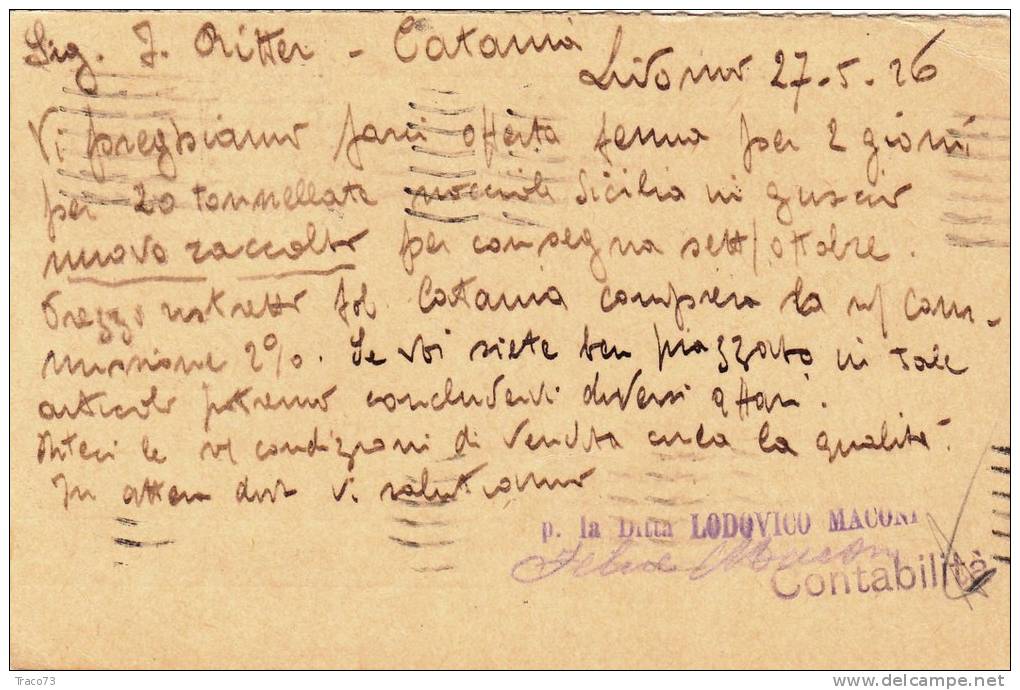 Sig. J. Ritter - Catania
Livorno 27.5.26
Vi preghiamo farci offerta ferma per 2 giorni
per 20 tonnellate nocciole Sicilia in guscio
nuovo raccolto per consegna sett/ottobre.
Prezzo ristretto fob. Catania compresa la n/ com-
missione 2%. Se voi siete ben piazzato in tale
articolo potremo concludervi diversi affari.
Diteci le v/ condizioni di vendita circa la qualità.
In attesa dirvi vi salutiamo
p. la Ditta LODOVICO MACONI
Maconi
Contabilità
Traco73
delcampe.net